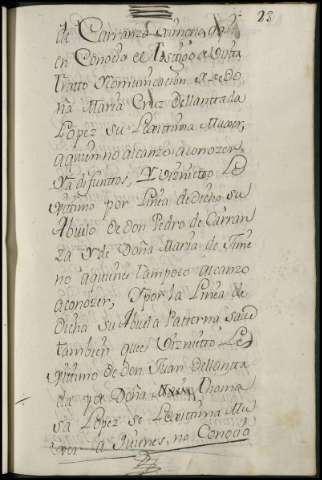 23
de Carranza quinene
en Conoció el testigo de vista
tratto Y comunicacion de Do
ña Maria Cruz de llantada
Lopez su Lexitima Muxer,
aquien no alcanzo aconozer,
Ya difuntos, Y Viznietto Le
xitimo por Linea de dicho su
Abuelo de don Pedro de Carran
za Y de Doña Maria de Xime
no aquienes tampoco alcanzo
aconozer, Y por la Linea de
dicha su Abuela Patterna save
tambien que es Viznietto Le
xitimo de don Juan de llanta
da y de Doña Thoma
sa Lopez su Lexitima Mu
xer a Quienes, no Conoció